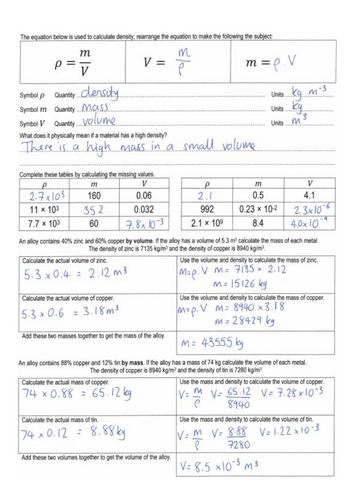 The equation below is used to calculate density; rearrange the equation to make the following the subject:
ρ = m/V V = m/ρ m = ρ V
Symbol ρ Quantity density Units kg m⁻³
Symbol m Quantity mass Units kg
Symbol V Quantity volume Units m³
What does it physically mean if a material has a high density?
There is a high mass in a small volume
Complete these tables by calculating the missing values.
ρ m V ρ m V
2.7×10³ 160 0.06 2.1 0.5 4.1
11 × 10³ 352 0.032 992 0.23 × 10⁻² 2.3×10⁻⁶
7.7 × 10³ 60 7.8×10⁻³ 2.1 × 10⁹ 8.4 4.0×10⁻⁹
An alloy contains 40% zinc and 60% copper by volume. If the alloy has a volume of 5.3 m³ calculate the mass of each metal.
The density of zinc is 7135 kg/m³ and the density of copper is 8940 kg/m³.
Calculate the actual volume of zinc. Use the volume and the density to calculate the mass of zinc.
5.3 × 0.4 = 2.12 m³ m=ρ.V m= 7135 × 2.12
m= 15126 kg
Calculate the actual volume of copper. Use the volume and the density to calculate the mass of copper.
5.3 × 0.6 = 3.18 m³ m=ρ.V m= 8940 × 3.18
m= 28429 kg
Add these two masses together to get the mass of the alloy. m = 43555 kg
An alloy contains 88% copper and 12% tin by mass. If the alloy has a mass of 74 kg calculate the volume of each metal.
The density of copper is 8940 kg/m³ and the density of tin is 7280 kg/m³.
Calculate the actual mass of copper. Use the mass and the density to calculate the volume of copper.
74 × 0.88 = 65.12 kg V= m/ρ V= 65.12/8940 V= 7.28×10⁻³
Calculate the actual mass of tin. Use the mass and the density to calculate the volume of tin.
74 × 0.12 = 8.88kg V= m/ρ V= 8.88/7280 V= 1.22×10⁻³
Add these two volumes together to get the volume of the alloy. V= 8.5 ×10⁻³ m³